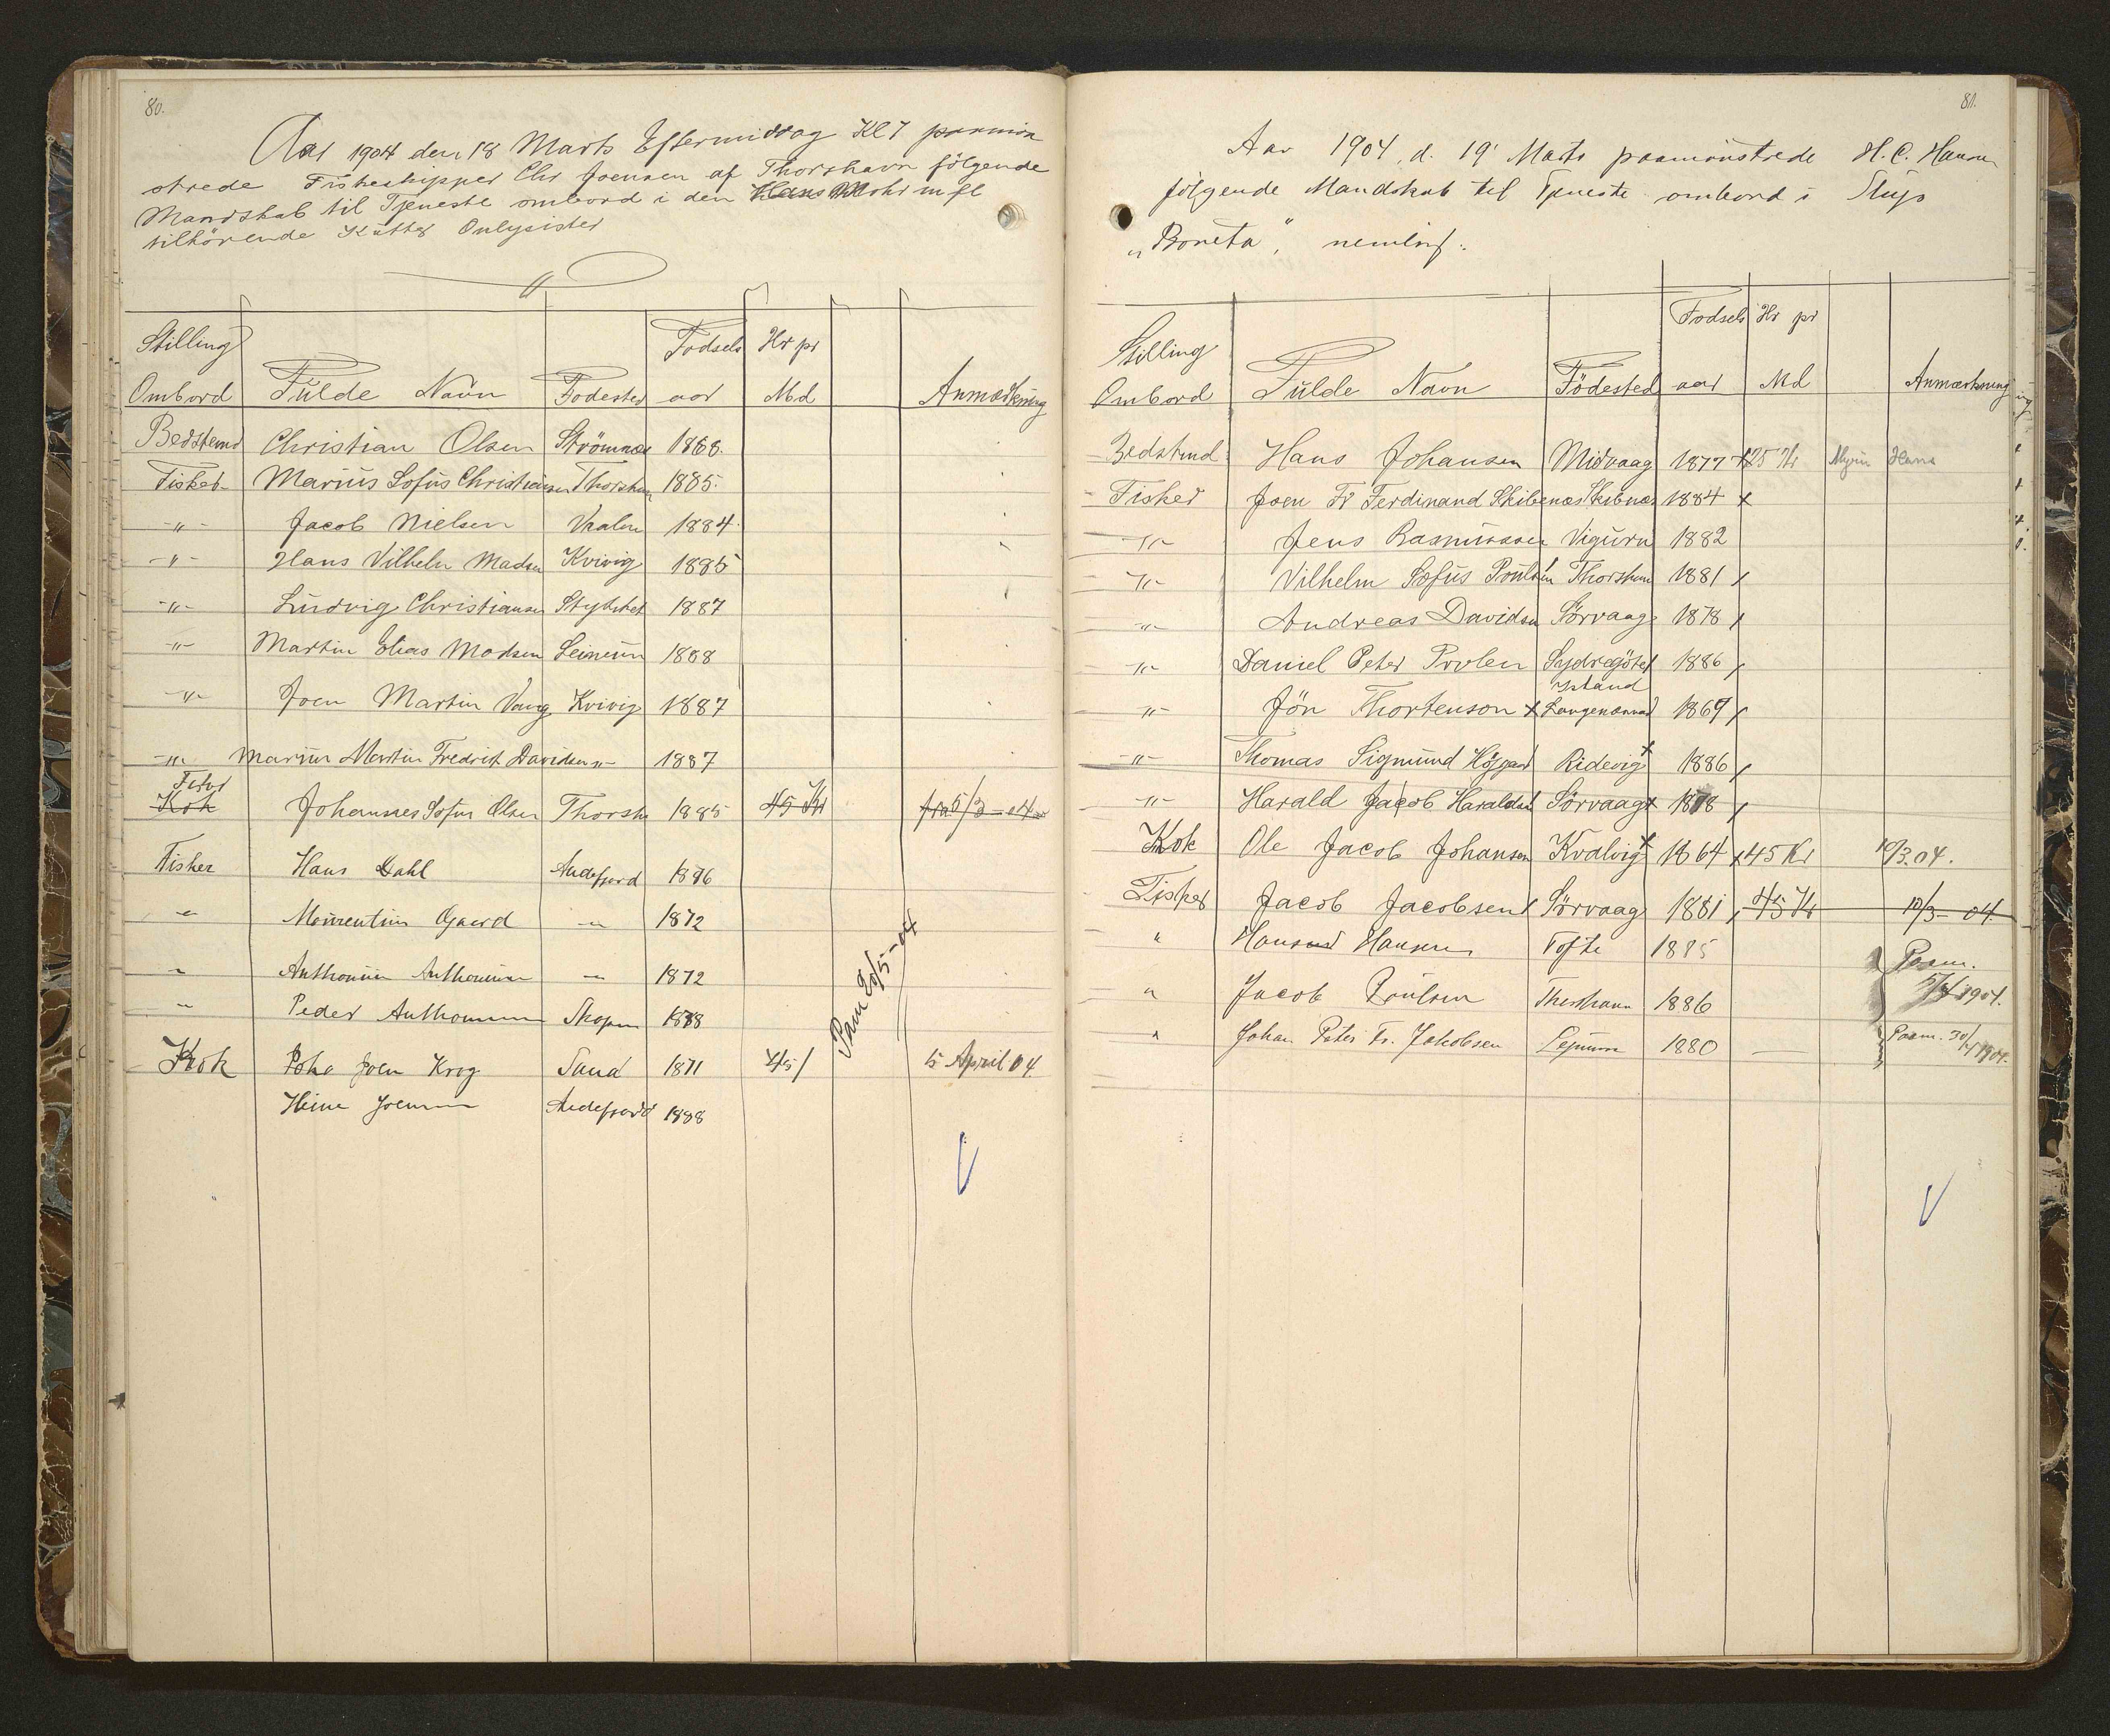 80.
Aar 1904 den 18 Marts Eftermiddag Kl 7 paamön
strede Fiskeskipper Chr Joensen af Thorshavn følgende
Mandskab til Tjeneste ombord i den Hans Mohr m fl
tilhörende Kutter
Stilling Fodsels Kr pr
Ombord Fulde Navn Fodested aar Md Anmærkning
Bedstemd Christian Olsen Strömnæs 1868.
Fisker Marius Sofus Christiansen Thorshvn 1885.
-"- Jacob Nielsen 1884.
-"- Hans Vilhelm Madsen Kvivig 1885
-"- Ludvig Christiansen 1887
-"- Martin Elias Madsen Leinum 1888
-"- Joen Martin Vang Kvivig 1887
-"- Marius Martin Fredrik Davidsen -"- 1887
Fisker
Kok Johannes Sofus Olsen Thorsh 1885 45 Kr fra 5/3-04
Fisker Hans Dahl Andefjord 1886
" 1872
" 1872
" Peder Skopen 1888
Kok Joen Krog Sand 1871 45/ 5 April 04
Heine Joensen Andefjord 1888
81.
Aar 1904, d. 19' Marts paamönstrede H. C. Hansen
følgende Mandskab til Tjeneste ombord i Slup
"Boneta", nemlig:
Fodsels Kr pr
Stilling
Ombord Fulde Navn Födested aar Md Anmærkning
Bedstmd Hans Johansen Midvaag 1877 x 75 Kr
Fisker Joen Fr Ferdinand Skibenæs Skibnæs 1884 x
-"- Jens Rasmussen 1882
-"- Vilhelm Sofus Poulsen Thorshavn 1881 x
-"- Andreas Davidsen Sörvaag 1878 x
-"- Daniel Peter Sydregöte 1886 x
Island
-"- Jön Thortenson x Langenænæs 1869 x
-"- Thomas Sigmund Höjgaard Ridevig x 1886 x
-"- Harald Jacob Haraldsen Sörvaag x 1878 x
Kok Ole Jacob Johansen Kvalvig x 1864 x 45 Kr 10/3.04.
Fisker Jacob Jacobsen x Sörvaag 1881 x 45 Kr 10/3-04.
" Hansen Tofte 1885 Paam.
" Jacob Poulsen Thorshavn 1886 5/4 1904.
" Johan Peter Fr. Jakobsen 1880 — Paam. 30/4 1904.